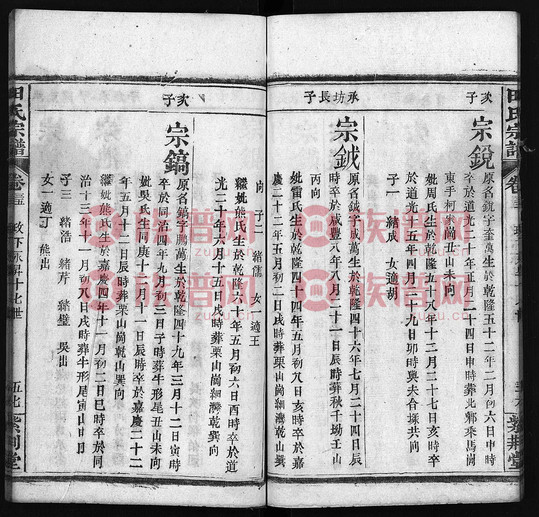 次子
宗銳
原名鋭字奎萬生於乾隆五十二年二月初六日申時
卒於道光十年十二月二十四日申時葬史北鄉乘馬崗
東手柯家嶌丑山未向
妣周氏生於乾隆五十六年十二月三十七日亥時卒
於道光十五年四月二十九日卯時與夫合塚共向
子一 緒成 女一適胡
承坊長子
宗鉞
原名鉞字成萬生於乾隆四十六年七月二十四日辰
時卒於咸豐八年八月二十日戌時葬秋千坳壬山
丙向
妣雷氏生於乾隆四十四年五月初八日亥時卒於嘉
慶二十二年五月初二日辰時葬栗山崗細灣乾山巽
向 子一 緒儒 女一適王
繼妣熊氏生於乾隆六十年五月初六日酉時卒於道
光二十年六月十五日戌時葬栗山崗細灣乾巽向
次子
宗鎬
原名鎬字鵬萬生於乾隆四十九年三月十二日寅時
卒於同治四年九月初三日子時葬牛形尾丑山未向
妣吳氏生於同庚十二月十一日辰時卒於嘉慶二十二
年五月十二日辰時葬栗山崗乾山巽向
繼妣熊氏生於嘉慶四年十一月初二日巳時卒於同
治十三年十一月初六日戌時葬牛形尾癸山丁向
子三 緒浩 緒芹 緒璧 吳出
女一適丁 熊出
田氏宗譜
卷三五
政下承昇十七世
五七
紫荊堂
族譜网
zupu.cn